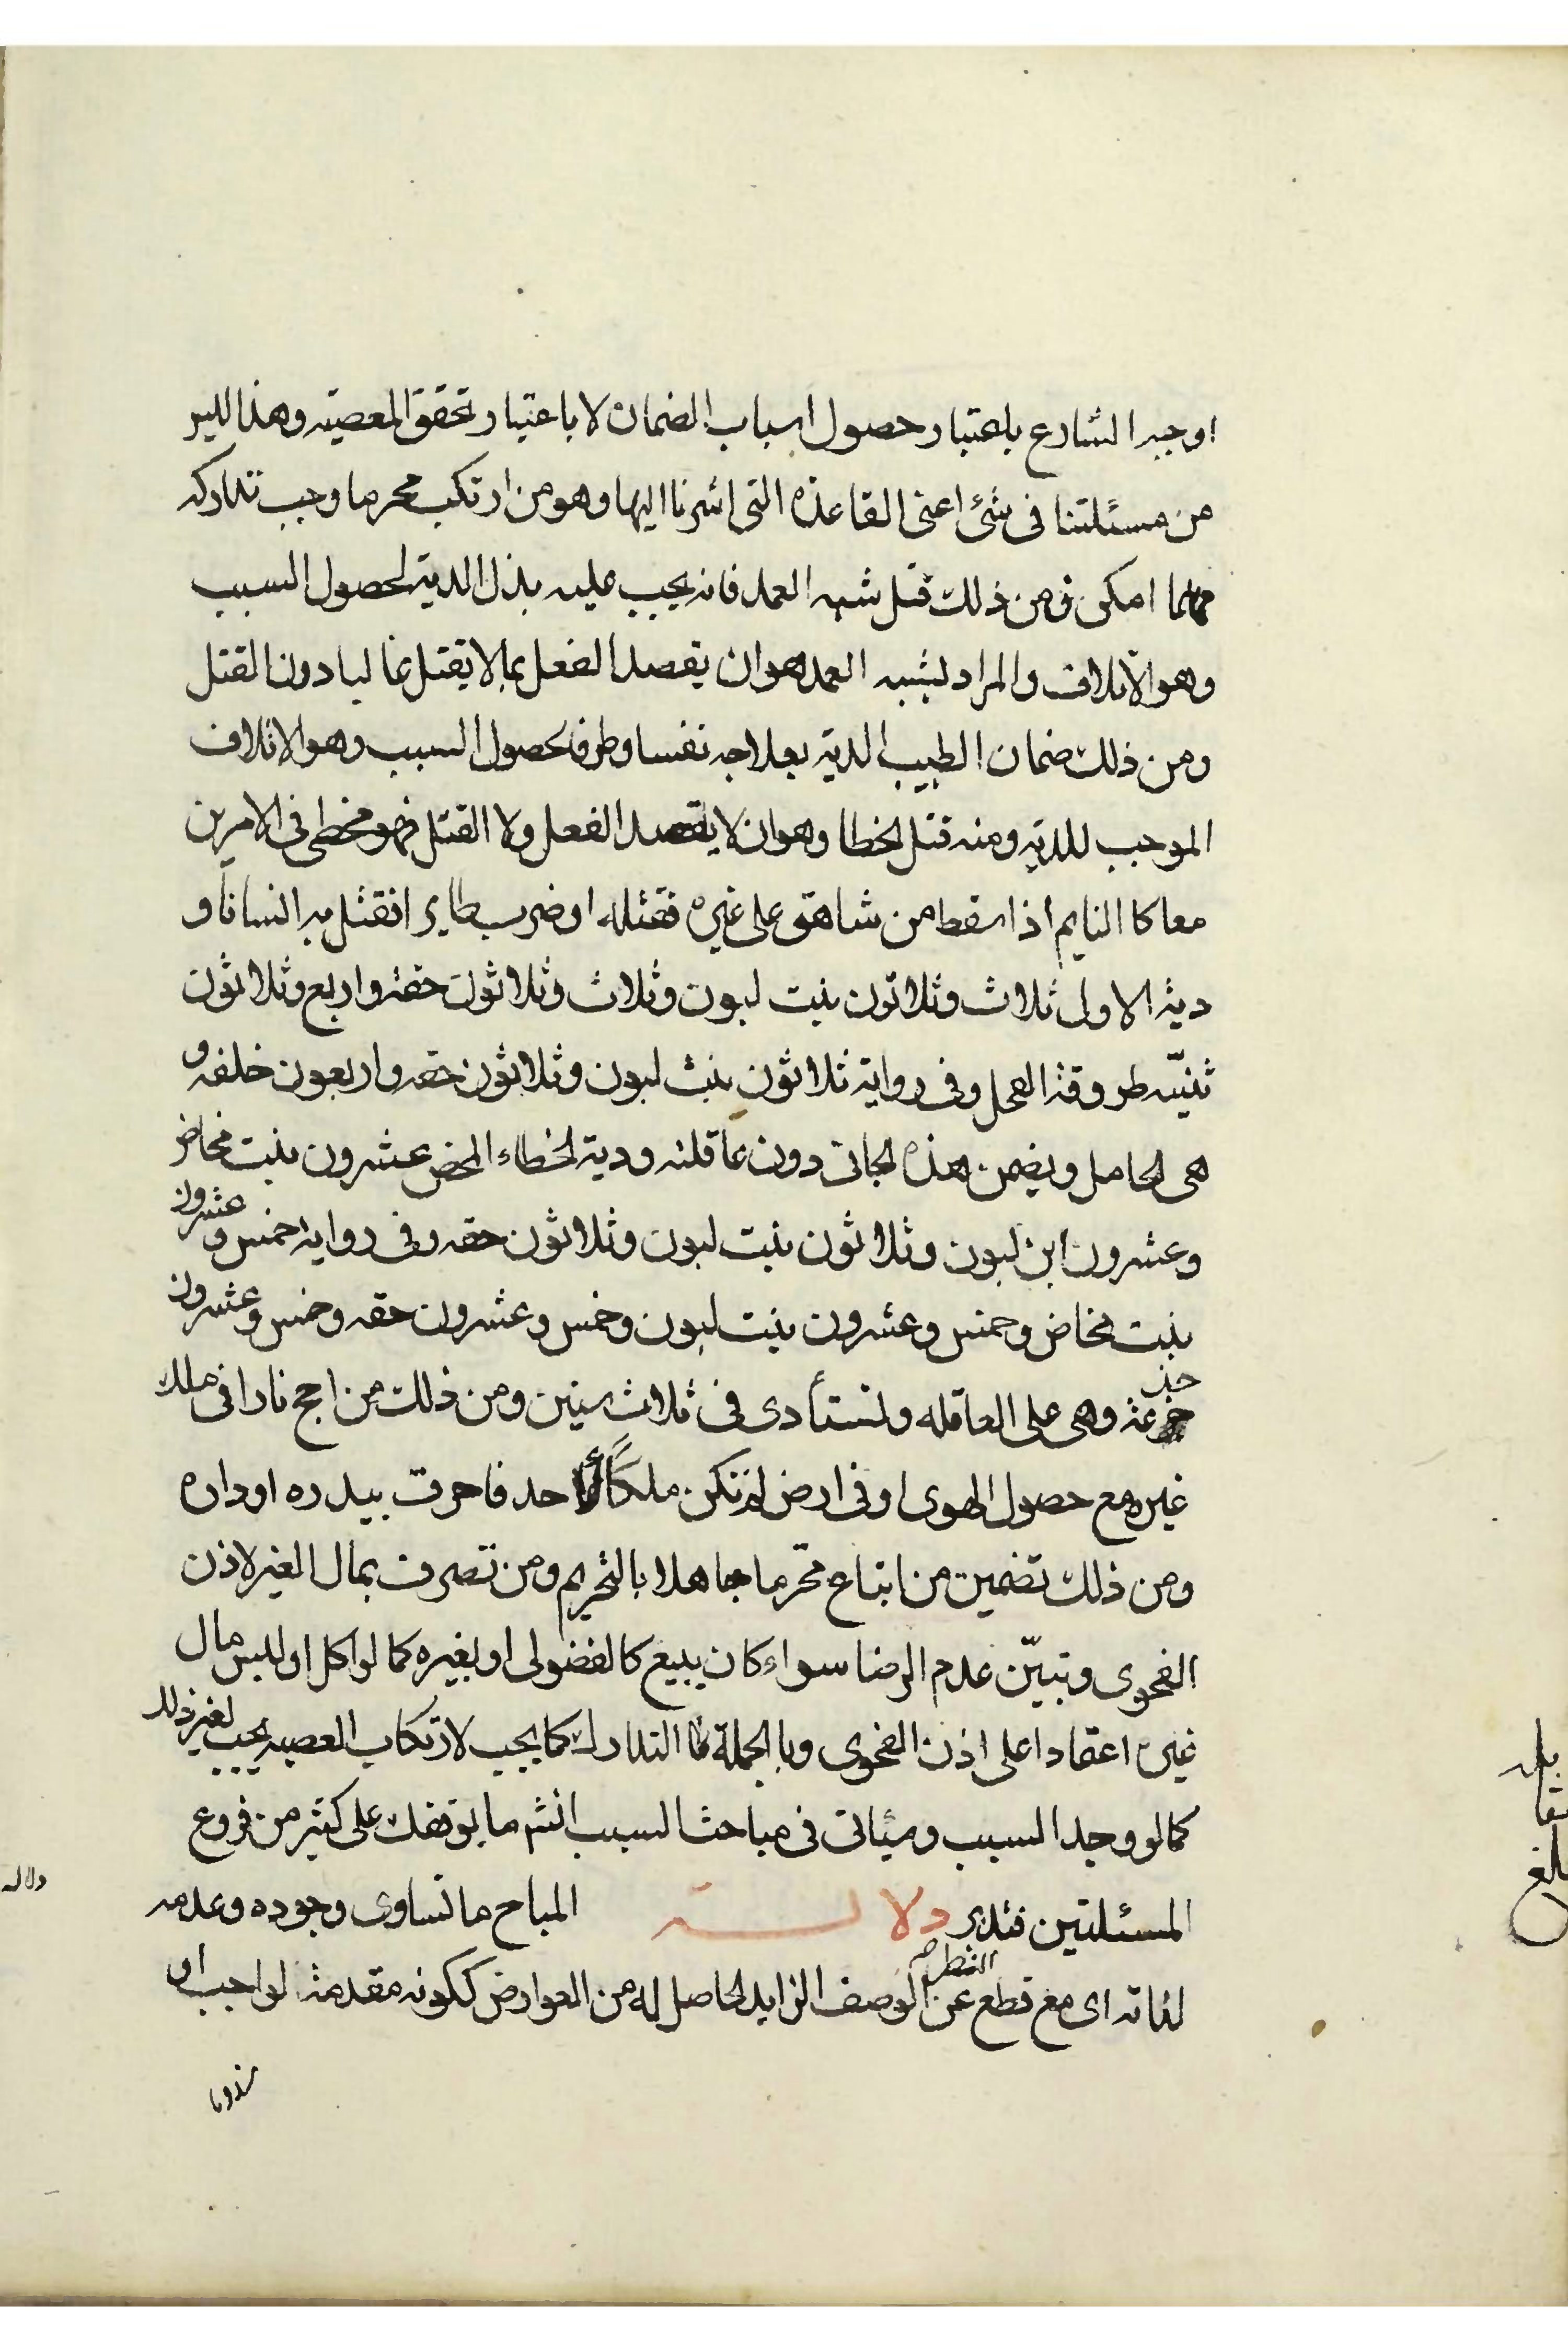 اوجبه الشارع باعتبار حصول اسباب الضمان لا باعتبار تحقق المعصيته وهذا ليس
من مسئلتنا فى شئ اعنى القاعدة التى اشرنا اليها وهو من ارتكب محرما وجب تداركه
مهما امكن فمن ذلك قتل شبه العمد فانه يجب عليه بذل الدية لحصول السبب
وهو الاتلاف والمراد بشبه العمد هو ان يقصد الفعل بما لا يقتل غالبا دون القتل
ومن ذلك ضمان الطبيب الدية بعلاجه نفسا وطرفا لحصول السبب وهو الاتلاف
الموجب للدية ومنه قتل الخطا وهو ان لا يقصد الفعل ولا القتل فهو مخطى فى الامرين
معا كا النايم اذا سقط من شاهق على غيره فقتله او ضرب طايرا فقتل به انسانا و
دية الاول ثلاث وثلاثون بنت لبون وثلاث وثلاثون حقة واربع وثلاثون
ثنيّه طروقة الفحل وفى رواية ثلاثون بنت لبون وثلاثون حقه واربعون خلفه و
هى الحامل ويضمن هذه الجانى دون عاقلته ودية الخطاء المحض عشرون بنت مخاض
وعشرون ابن لبون وثلاثون بنت لبون وثلاثون حقه وفى رواية خمس وعشرون
بنت مخاض وخمس وعشرون بنت لبون وخمس وعشرون حقه وخمس وعشرون
جذعة وهى على العاقله وتستأدى فى ثلاث سنين ومن ذلك من اجج نارا فى ملك
غيره مع حصول الهوى او فى ارض لم تكن ملكًا لأحد فاحرقت بيدره او داره
ومن ذلك تضمين من ابتاع محّرما جاهلا بالتحريم ومن تصرف بمال الغير لاذن
الفحوى وتبيّن عدم الرضا سواء كان ببيع كالفضولى او بغيره كما لو اكل او لبس مال
غيره اعتقادا على اذن الفحوى وبا الجملة فا التدارك كما يجب لارتكاب العصيه يجب لغير ذلك
كما لو وجد السبب وسياتى فى مباحث السبب انشم ما يوقفك على كثير من فروع
المسئلتين فتدبر دلالـــة المباح ما تساوى وجوده وعدمه
لذاته اى مع قطع النظر عن الوصف الزايد الحاصل له من العوارض ككونه مقدمة لواجب او
مندوبا
دلاله
بلغ
مقابله